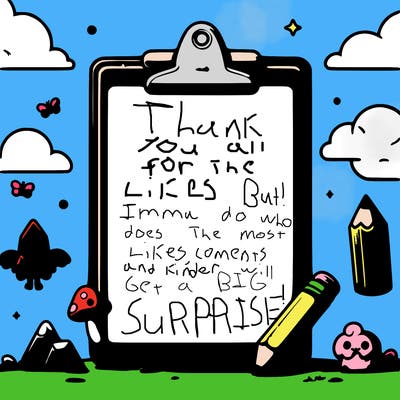 Thank
you all
for the
LiKES But!
Imma do who
does The most
Likes coments
and kinder will
Get a BIG
SURPRISE!